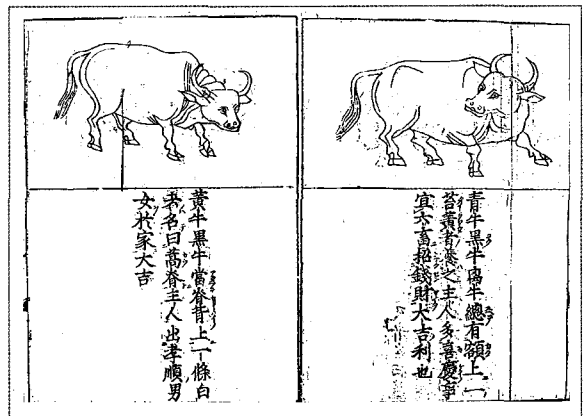 青牛黑牛牛總有額上一
者應之主人多喜慶事
宜六畜招錢財大吉利也
黃牛黑牛當脊背上一條白
者名曰蒿脊主人出孝順男
女於家大吉